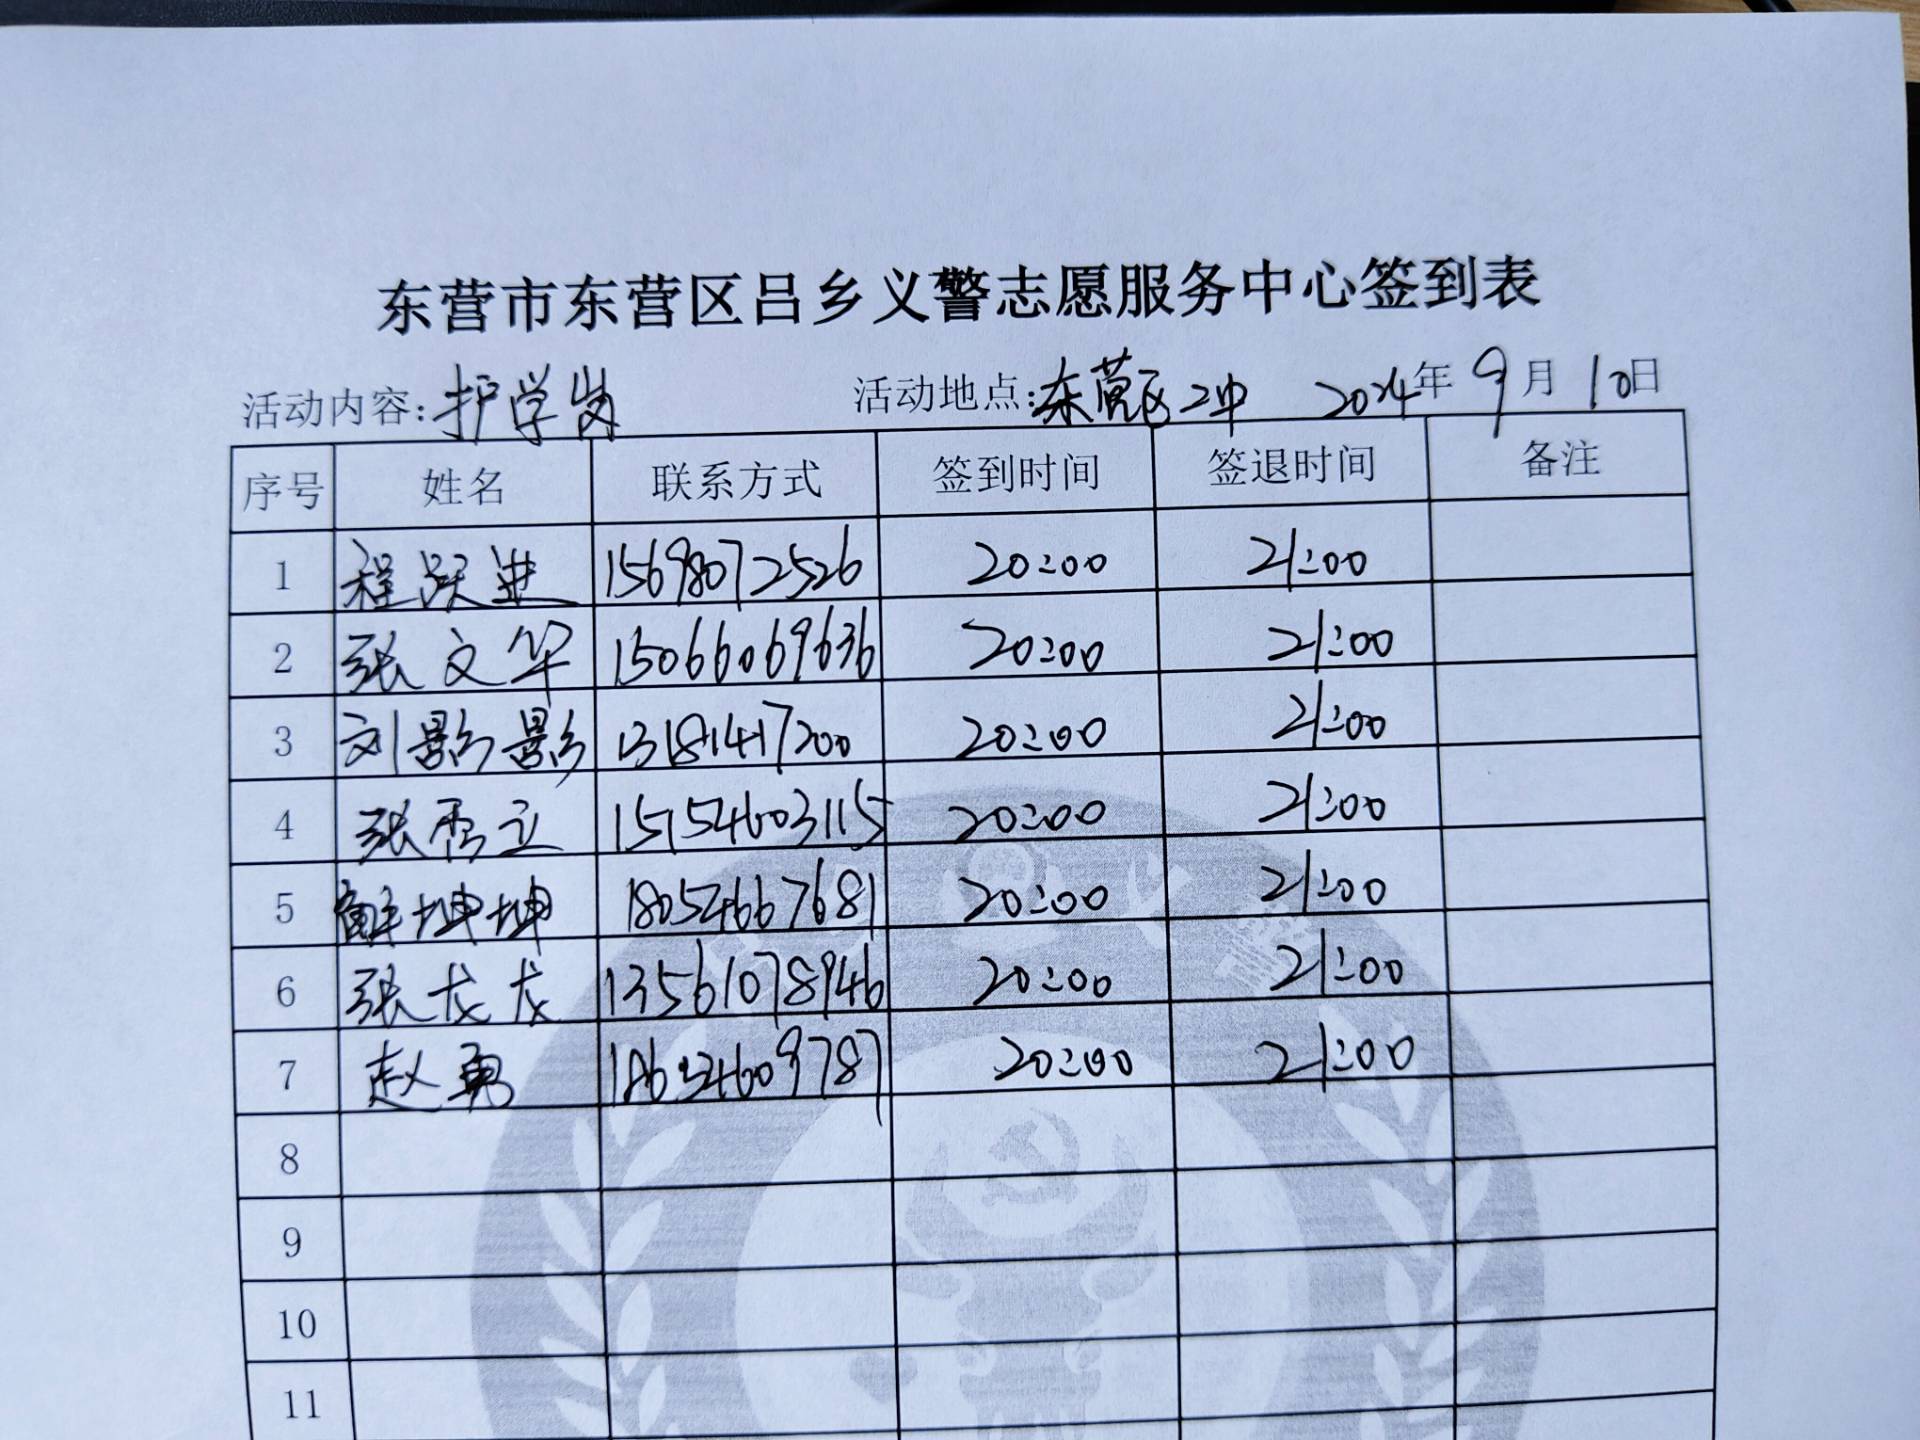 东营市东营区吕乡义警志愿服务中心签到表
活动内容:护学岗 活动地点:东营区二中 2024年9月10日
序号 姓名 联系方式 签到时间 签退时间 备注
1 程跃进 15698072526 20:00 21:00
2 张文华 15066069636 20:00 21:00
3 刘影影 13181417200 20:00 21:00
4 张秀立 15154603115 20:00 21:00
5 解坤坤 18054667681 20:00 21:00
6 张龙龙 13561078946 20:00 21:00
7 赵勇 18654609787 20:00 21:00
8
9
10
11